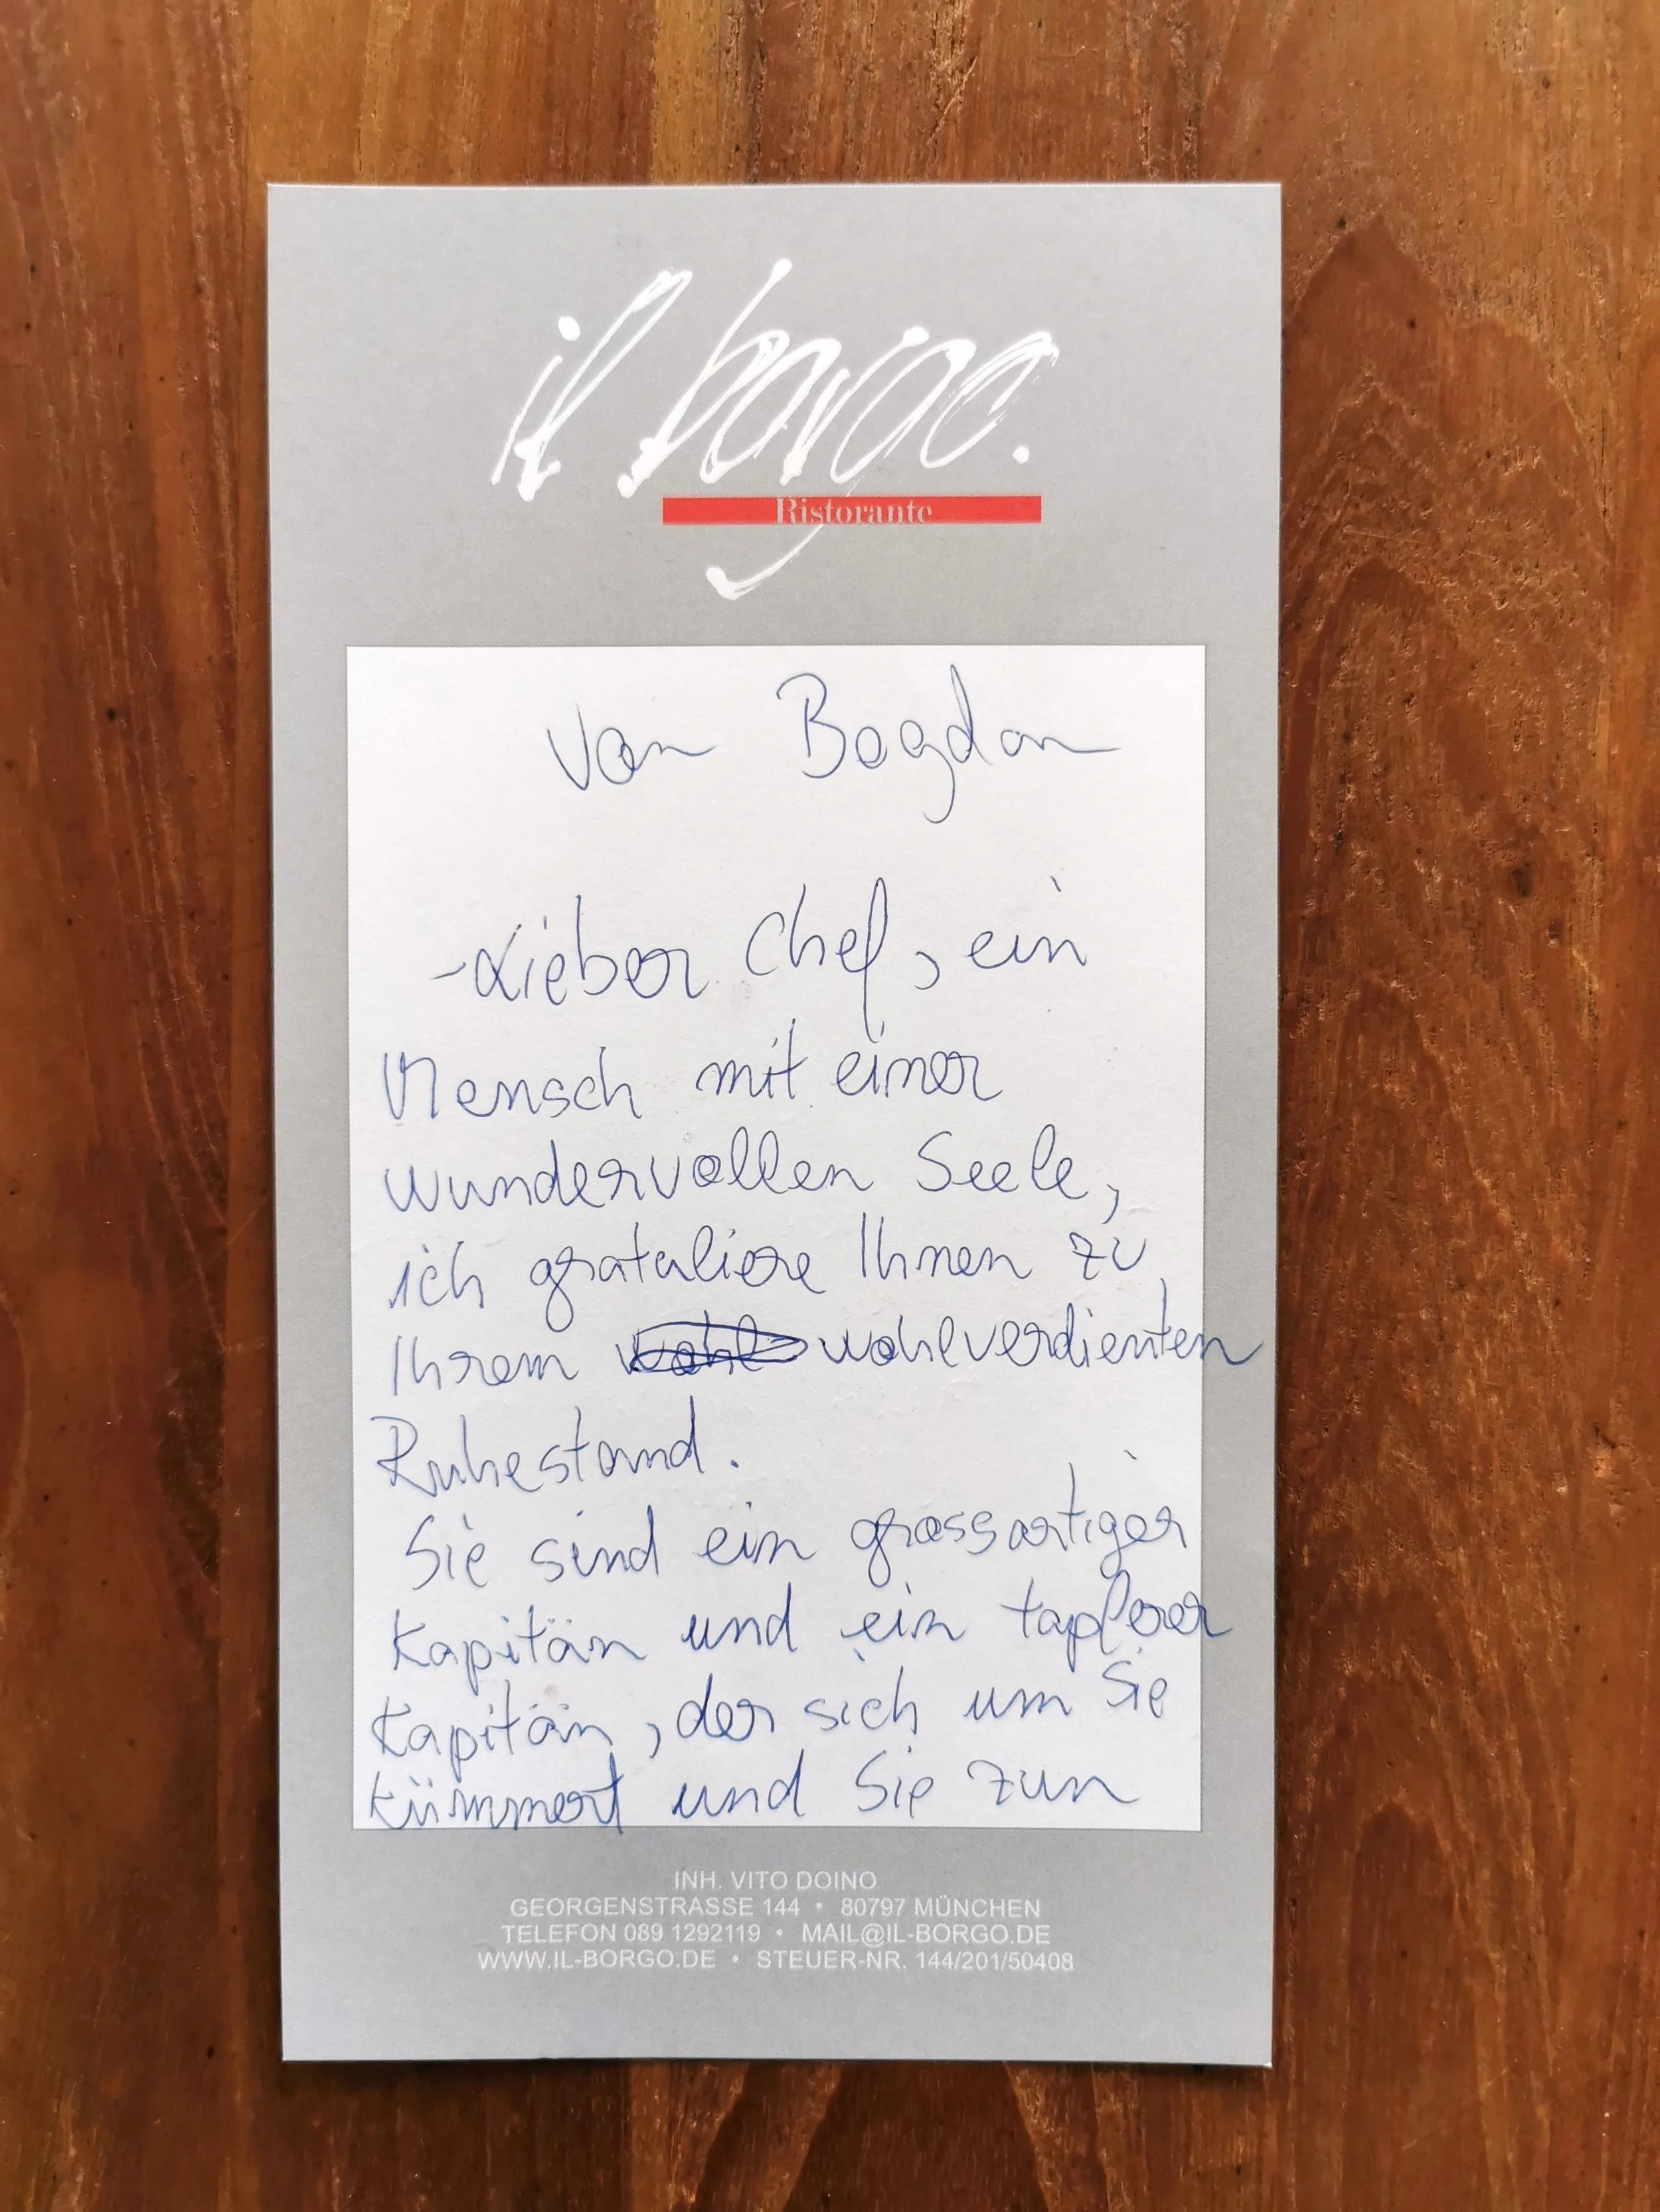 il borgo.
Ristorante
von Bogdan
- Lieber Chef, ein
Mensch mit einer
wundervollen Seele,
ich grataliere Ihnen zu
Ihrem wohl wohlverdienten
Ruhestand.
Sie sind ein grossartiger
Kapitän und ein tapferer
Kapitän, der sich um Sie
kümmert und Sie zun
INH. VITO DOINO
GEORGENSTRASSE 144 • 80797 MÜNCHEN
TELEFON 089 1292119 • MAIL@IL-BORGO.DE
WWW.IL-BORGO.DE • STEUER-NR. 144/201/50408